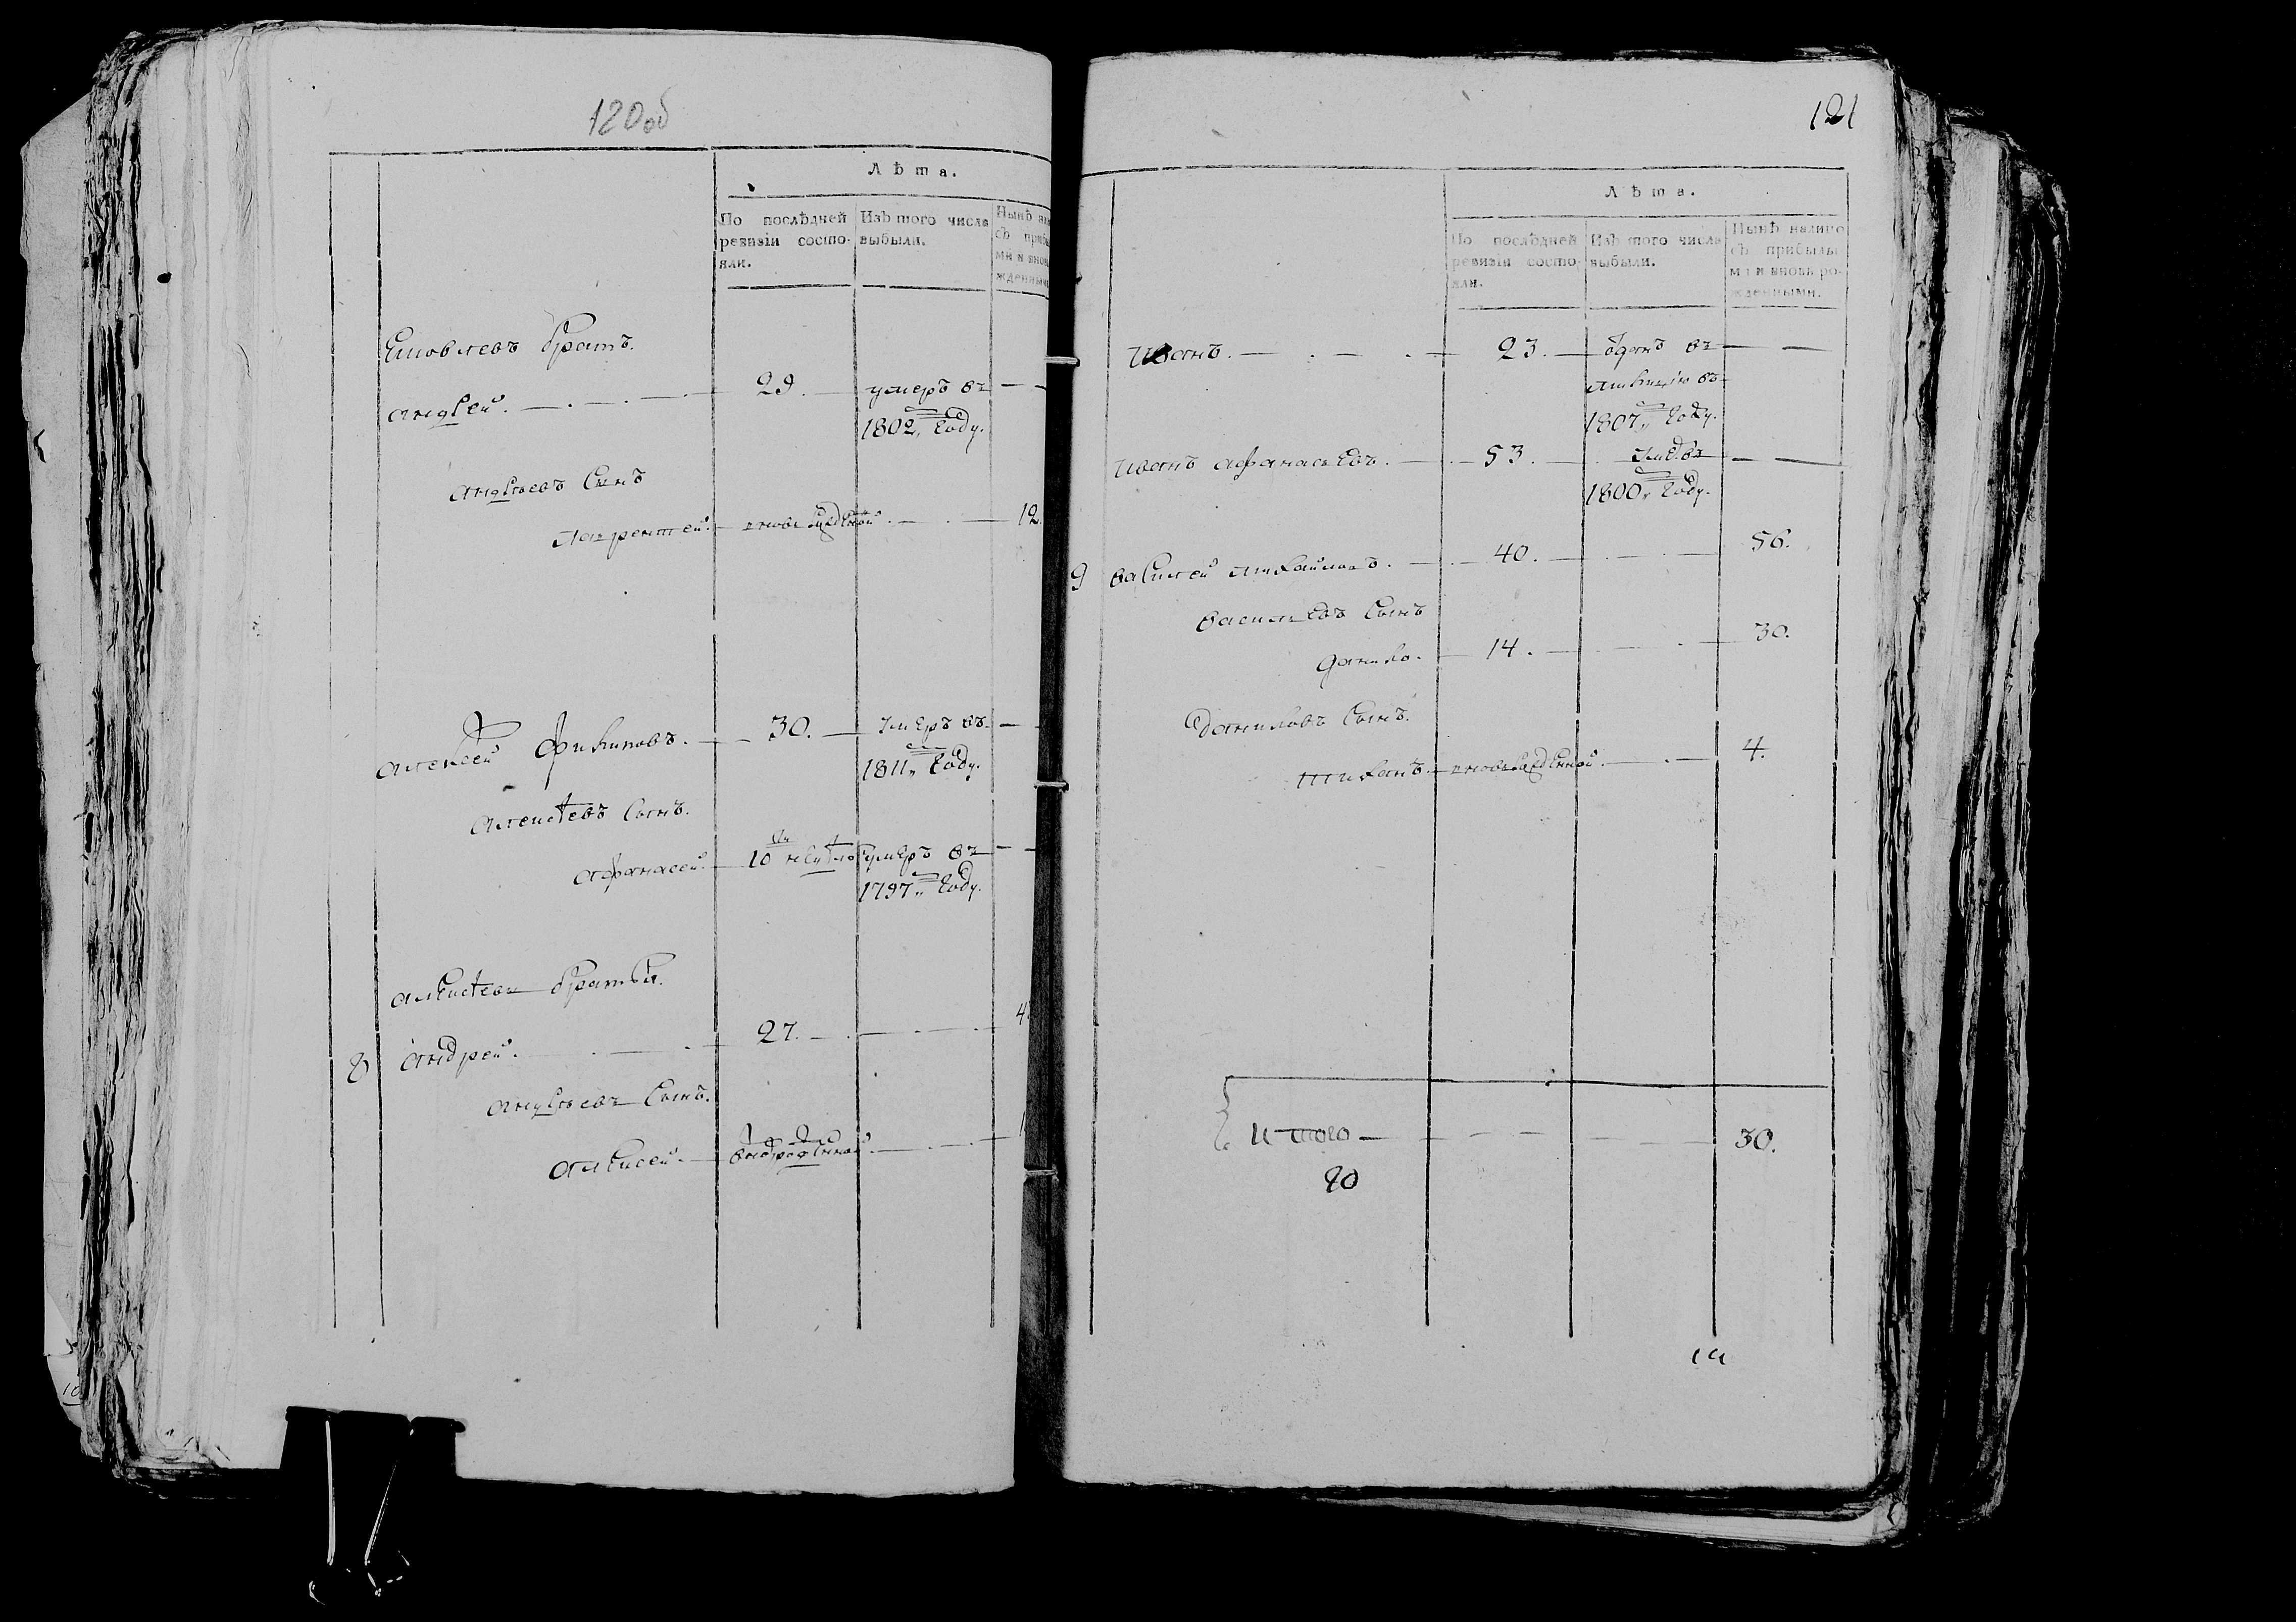 120 об
Лѣта.
По послѣдней ревизіи состо-
яли.
Изъ того числа
выбыли.
Нынѣ
съ
ми и внов
жденными
Яковлевъ братъ.
Андрей. 29. умеръ въ
1802 году.
Андреевъ сынъ
Лаврентей. вновь рожденной. 12.
Алексей Филиповъ. 30. умеръ въ
1811 году.
Алексеевъ сынъ.
Афанасей. 10 недель умеръ въ
1797 году.
Алексеевы братья.
8 Андрей. 27. 4
Андреевъ сынъ.
Алексей. вновь рожденной. 1
121
Лѣта.
По послѣдней
ревизіи состо-
яли.
Изъ того числа
выбыли.
Нынѣ налицо
съ прибылы-
ми и вновь ро-
жденными.
Иванъ. 23. отданъ въ
милицию въ
1807 году.
Иванъ Афанасьевъ. 53. умеръ въ
1800 году.
9 Василей Михайловъ. 40. 56.
Васильевъ сынъ
Данило. 14. 30.
Даниловъ сынъ.
Тиханъ. вновь рожденной. 4.
Итого 30.
20